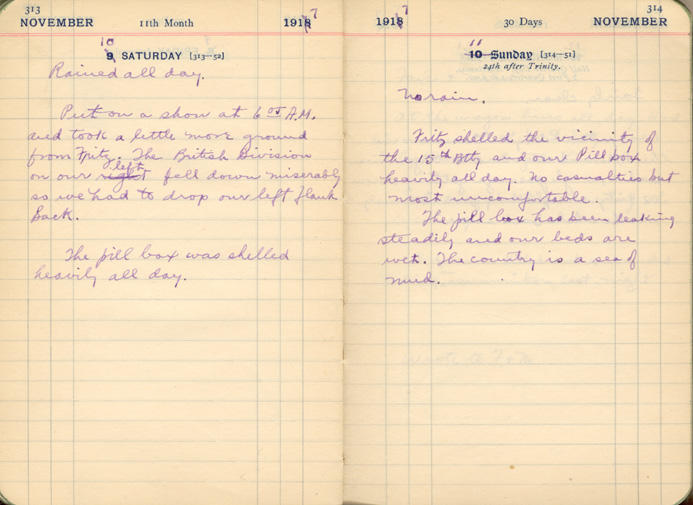 313
NOVEMBER 11th Month 1918 7
10
9 SATURDAY [313-52]
Rained all day.
Put on a show at 6 05 A.M.
and took a little more ground
from Fritz. The British Division
left
on our right fell down miserably
so we had to drop our left flank
back.
The pill box was shelled
heavily all day.
314
1918 7 30 Days NOVEMBER
11
10 Sunday [314-51]
24th after Trinity.
No rain.
Fritz shelled the vicinity of
the 15th Bty and our Pill box
heavily all day. No casualties but
most uncomfortable.
The pill box has been leaking
steadily and our beds are
wet. The country is a sea of
mud.